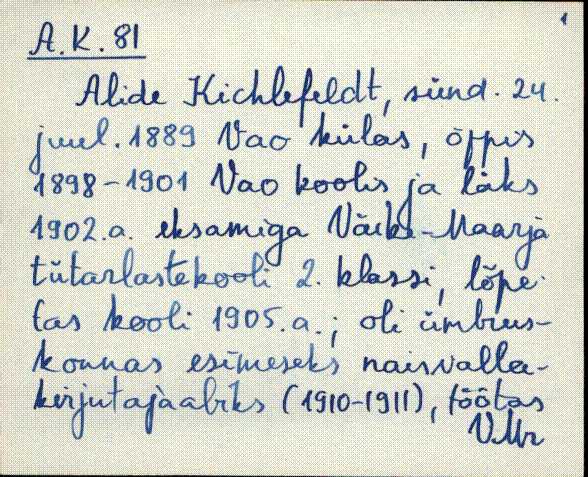 1
A.K. 81
Alide Kichlefeldt, sünd. 24.
juul. 1889 Vao külas, õppis
1898-1901 Vao koolis ja läks
1902.a. eksamiga Väike-Maarja
tütarlastekooli 2. klassi, lõpe-
tas kooli 1905.a.; oli ümbrus-
konnas esimeseks naisvalla-
kirjutajaabiks (1910-1911), töötas
V.Mr